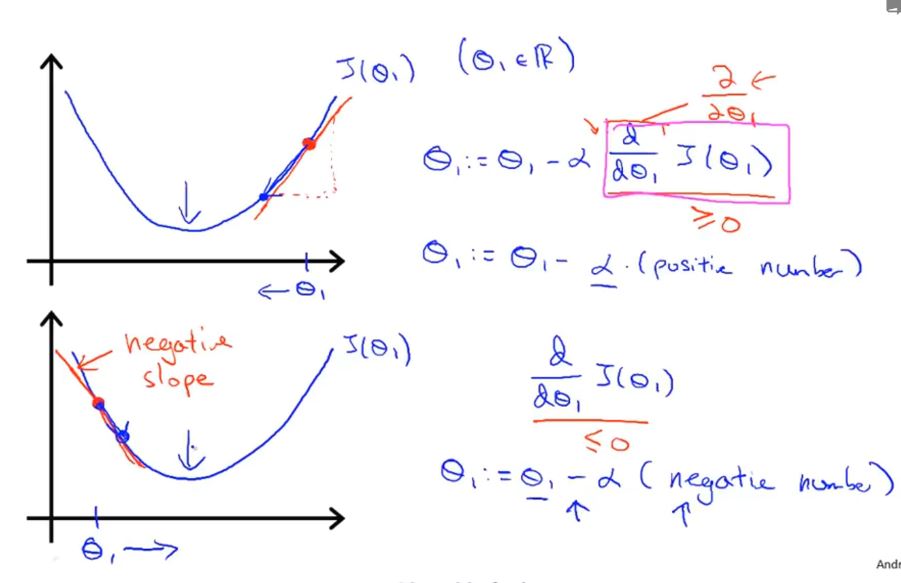 J(θ₁) (θ₁ ∈ ℝ)
∂/∂θ₁
θ₁ := θ₁ - α d/dθ₁ J(θ₁)
≥ 0
θ₁ := θ₁ - α · (positive number)
← θ₁
negative
slope
J(θ₁)
d/dθ₁ J(θ₁)
≤ 0
θ₁ := θ₁ - α (negative number)
θ₁ →
Andr